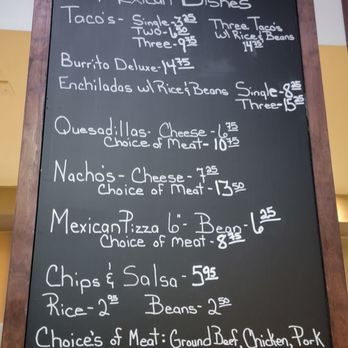 Mexican Dishes
Taco's - Single - 3.25 Three Taco's
Two - 6.50 w/ Rice & Beans
Three - 9.75 14.75
Burrito Deluxe - 14.75
Enchiladas w/ Rice & Beans Single - 8.25
Three - 15.25
Quesadillas - Cheese - 6.75
Choice of Meat - 10.75
Nacho's - Cheese - 7.25
Choice of Meat - 13.50
Mexican Pizza 6" - Bean - 6.25
Choice of meat - 8.75
Chips & Salsa - 5.95
Rice - 2.95 Beans - 2.50
Choice's of Meat: Ground Beef, Chicken, Pork